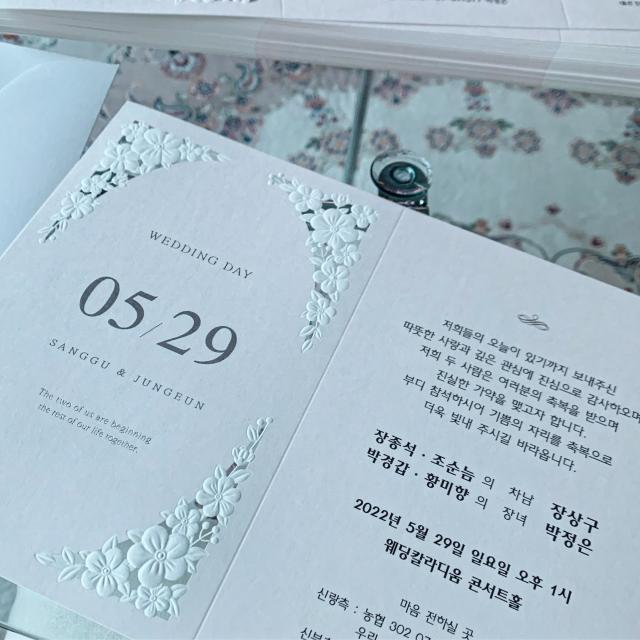 WEDDING DAY
05/29
SANGGU & JUNGEUN
The two of us are beginning
the rest of our life together.
저희들의 오늘이 있기까지 보내주신
따뜻한 사랑과 깊은 관심에 진심으로 감사하오며
저희 두 사람은 여러분의 축복을 받으며
진실한 가약을 맺고자 합니다.
부디 참석하시어 기쁨의 자리를 축복으로
더욱 빛내 주시길 바라옵니다.
장종석 · 조순늠 의 차남 장상구
박경갑 · 황미향 의 장녀 박정은
2022년 5월 29일 일요일 오후 1시
웨딩칼라디움 콘서트홀
마음 전하실 곳
신랑측 : 농협 302 07